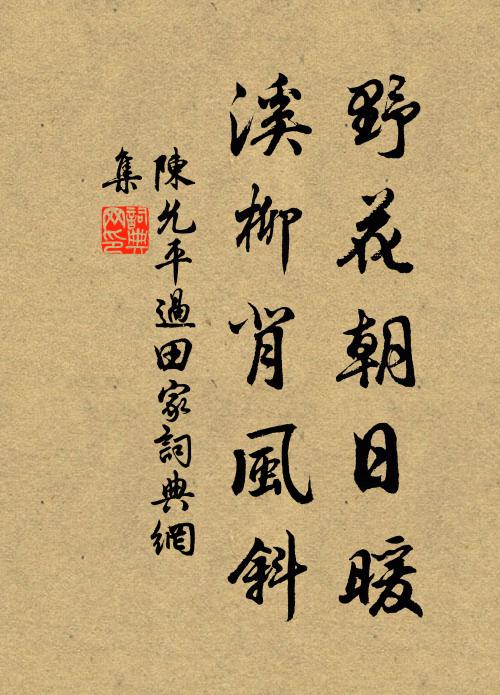 野花朝日暖
溪柳背風斜
陳允平過田家詞典網
集
詞典
网印